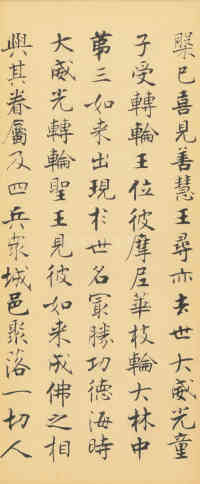 槃已喜見善慧王尋亦去世大威光童
子受轉輪王位彼摩尼華枝輪大林中
第三如来出現於世名冣勝功德海時
大威光轉輪聖王見彼如来成佛之相
與其眷屬及四兵衆城邑聚落一切人